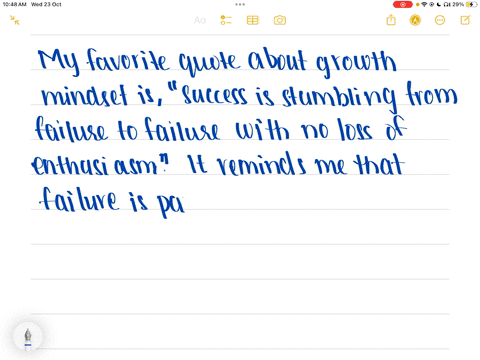 10:48 AM Wed 23 Oct
29%
Aa
My favorite quote about growth
mindset is, "Success is stumbling from
failure to failure with no loss of
enthusiasm". It reminds me that
failure is pa